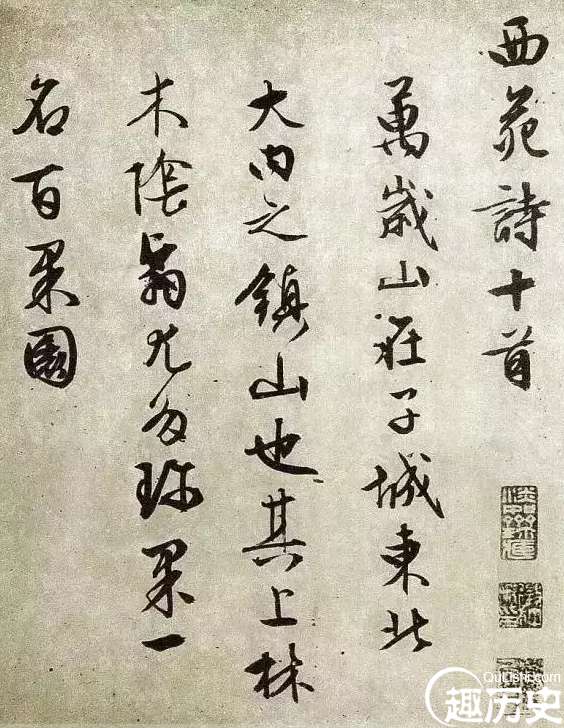 西苑詩十首
萬歲山在子城東北
大内之鎮山也其上林
木陰翳尤多珍果一
名百果園
QuLishi.com
趣历史